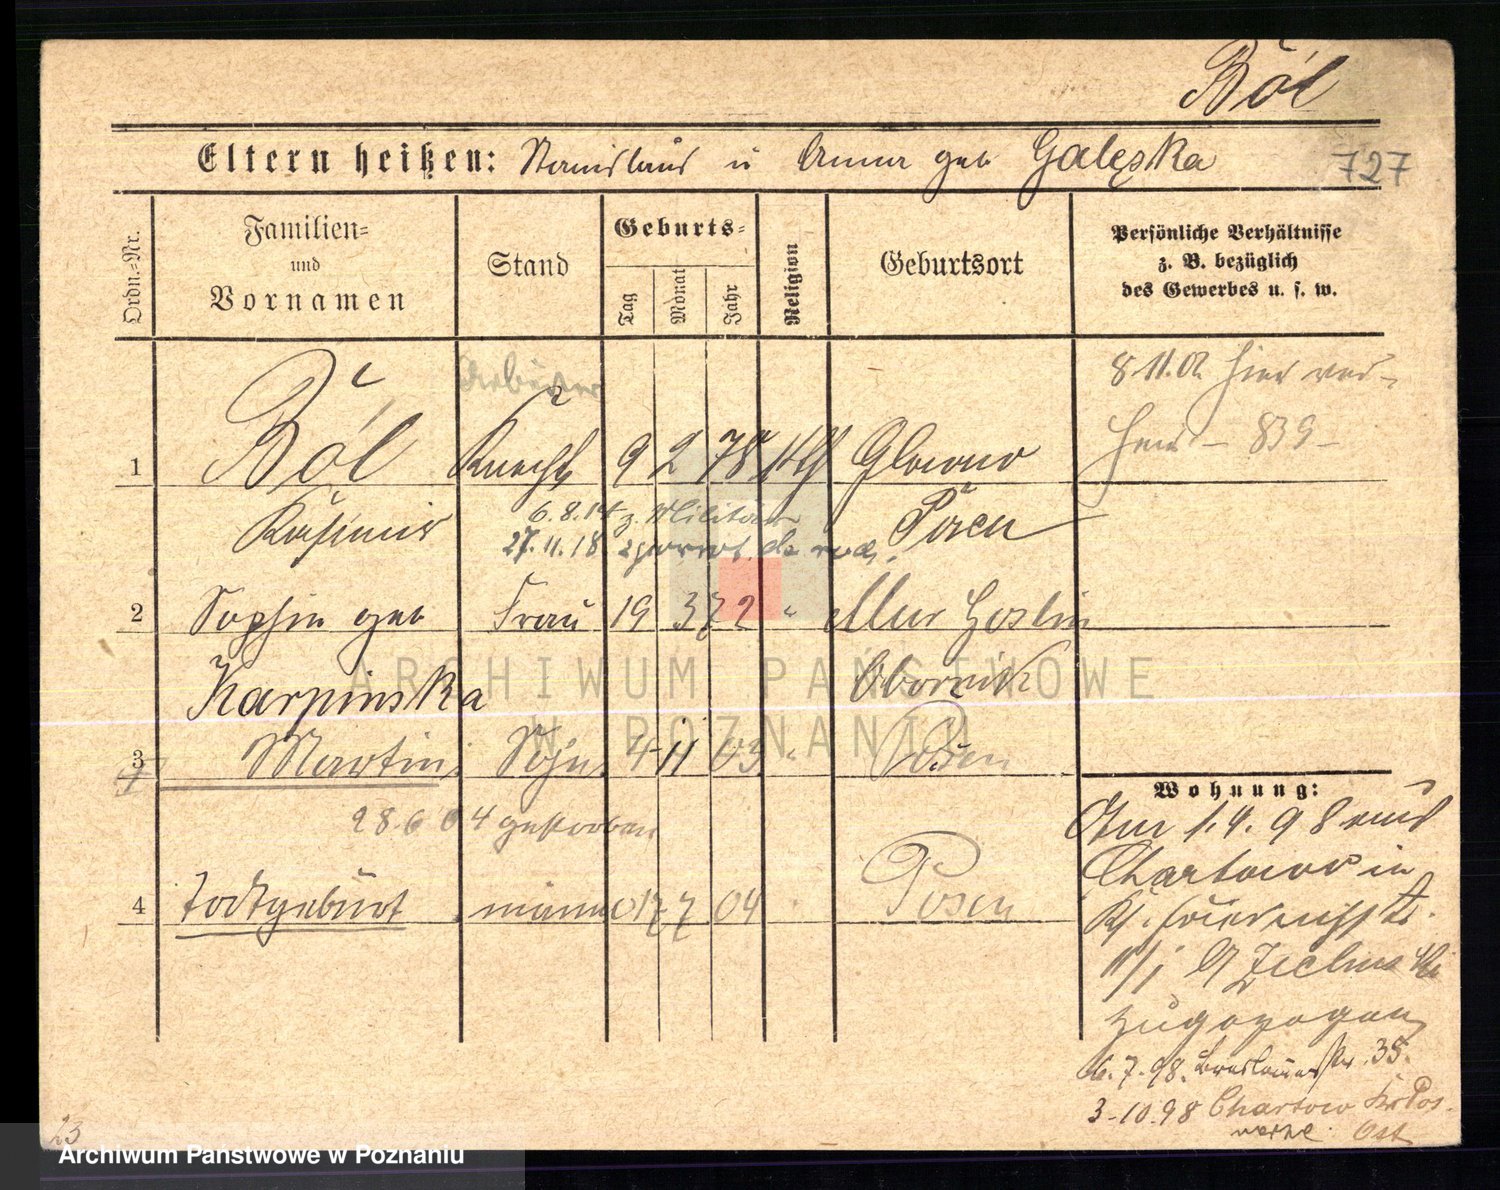 Ból
Eltern heißen: Stanislaus u Anna geb Galęska 727
Ordn.-Nr.
Familien-
und
Vornamen
Stand
Geburts-
Tag
Monat
Jahr
Religion
Geburtsort
Persönliche Verhältnisse
z. B. bezüglich
des Gewerbes u. s. w.
8.11.02 hier ver-
839
Arbeiter
1 Ból Knecht 9 2 78 kth Glowno
Kasimir Posen
6.8.14 z. Militär
27.11.18.
2 Sophie geb Frau 19 3 72 " Mur Goslin
Karpinska Obornik
3 Martin Sohn 4 11 03 " Posen
28.6.04 gestorben
4 Todtgeburt männ 017 7 04 Posen
Wohnung:
Am 1.4.98 aus
Chartowo in
zugezogen
6.7.98. Breslauerstr. 35.
3-10.98 Chartowo Kr Pos.
Ost
23
ARCHIWUM PAŃSTWOWE
W POZNANIU
Archiwum Państwowe w Poznaniu